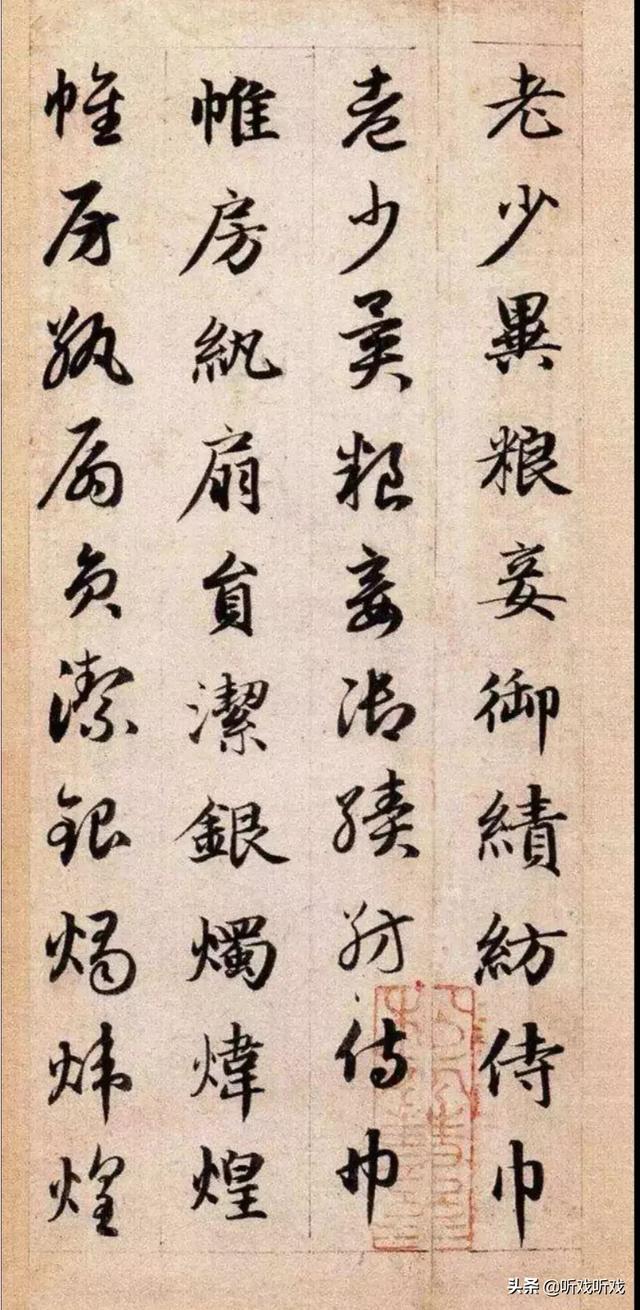 老少異粮妾御績紡侍巾
老少異粮妾御績紡侍巾
帷房紈扇員潔銀燭煒煌
帷房紈扇員潔銀燭煒煌
头条 @听戏听戏